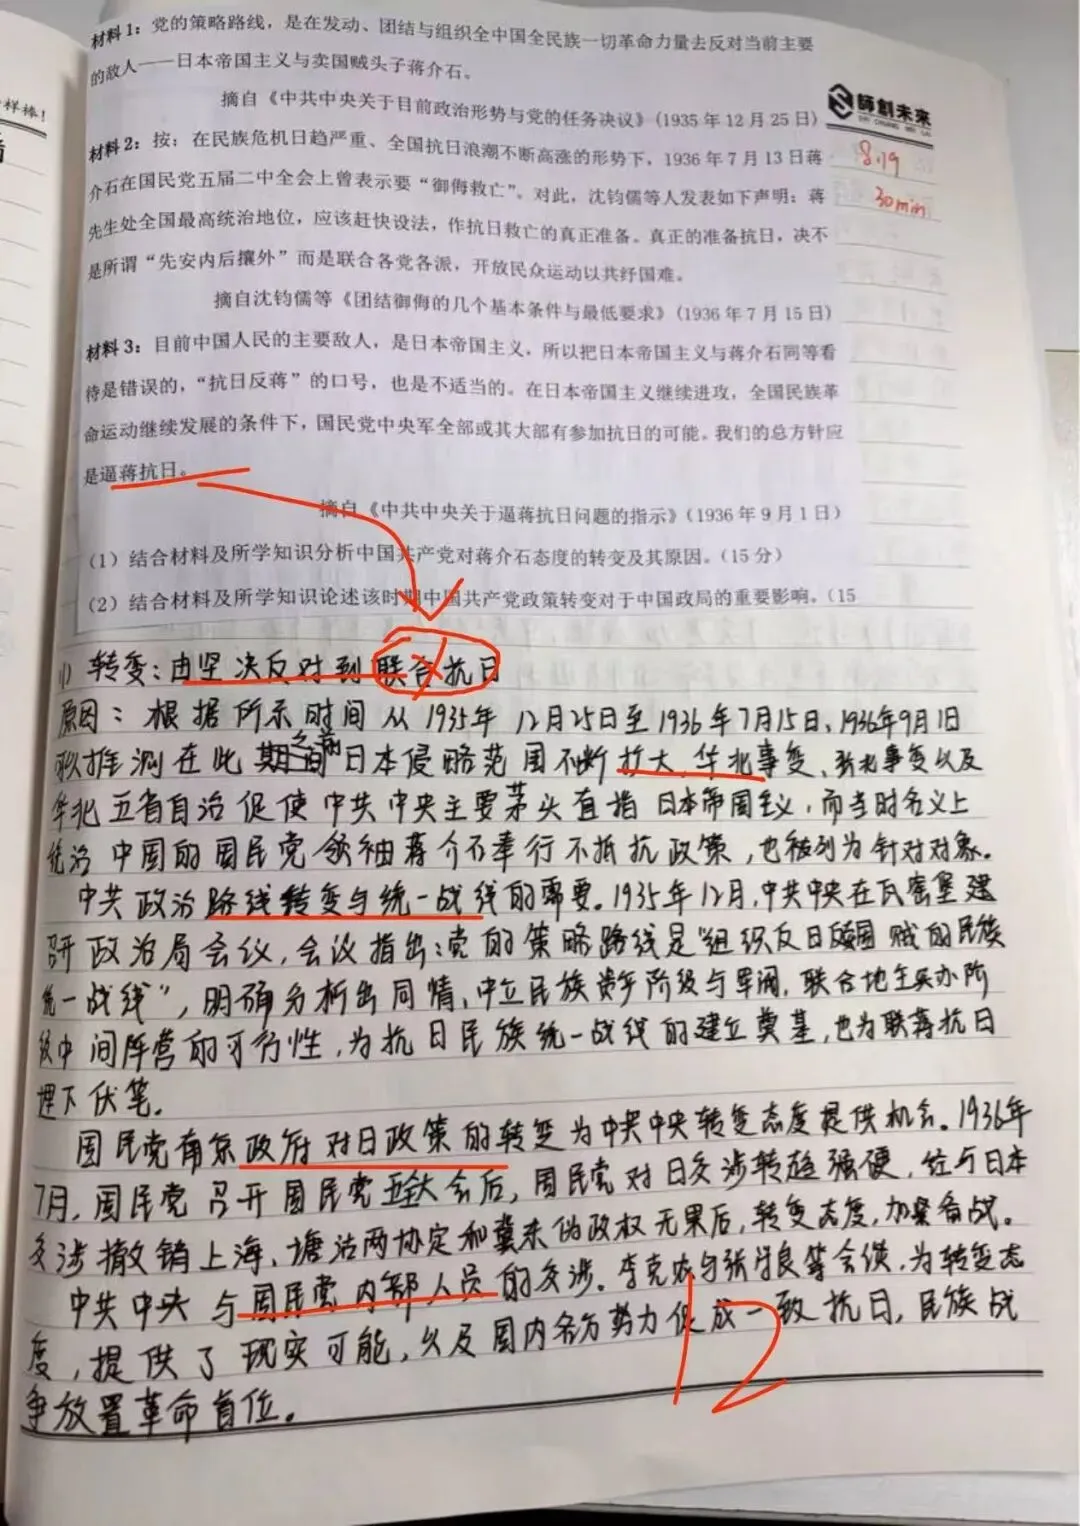 样棒！
材料1：党的策略路线，是在发动、团结与组织全中国全民族一切革命力量去反对当前主要
的敌人——日本帝国主义与卖国贼头子蒋介石。
摘自《中共中央关于目前政治形势与党的任务决议》（1935年12月25日）
師創未來
SHI CHUANG WEI LAI
8.19
30min
材料2：按：在民族危机日趋严重、全国抗日浪潮不断高涨的形势下，1936年7月13日蒋
介石在国民党五届二中全会上曾表示要“御侮救亡”。对此，沈钧儒等人发表如下声明：蒋
先生处全国最高统治地位，应该赶快设法，作抗日救亡的真正准备。真正的准备抗日，决不
是所谓“先安内后攘外”而是联合各党各派，开放民众运动以共纾国难。
摘自沈钧儒等《团结御侮的几个基本条件与最低要求》（1936年7月15日）
材料3：目前中国人民的主要敌人，是日本帝国主义，所以把日本帝国主义与蒋介石同等看
待是错误的，“抗日反蒋”的口号，也是不适当的。在日本帝国主义继续进攻，全国民族革
命运动继续发展的条件下，国民党中央军全部或其大部有参加抗日的可能。我们的总方针应
是逼蒋抗日。
摘自《中共中央关于逼蒋抗日问题的指示》（1936年9月1日）
（1）结合材料及所学知识分析中国共产党对蒋介石态度的转变及其原因。（15分）
（2）结合材料及所学知识论述该时期中国共产党政策转变对于中国政局的重要影响。（15
(1) 转变：由坚决反对到联合抗日
原因：根据所示时间从1935年12月25日至1936年7月15日、1936年9月1日
可以推测在此之前日本侵略范围不断扩大、华北事变、华北事变以及
华北五省自治促使中共中央主要茅头直指日本帝国主义，而当时名义上
统治中国的国民党领袖蒋介石奉行不抵抗政策，也被列为针对对象。
中共政治路线转变与统一战线的需要。1935年12月，中共中央在瓦窑堡建
召开政治局会议，会议指出：党的策略路线是“组织反日反卖国贼的民族
统一战线”，明确分析出同情、中立民族资产阶级与军阀，联合地主买办阶
级中间阵营的可行性，为抗日民族统一战线的建立奠基，也为联蒋抗日
埋下伏笔。
国民党南京政府对日政策的转变为中共中央转变态度提供机会。1936年
7月，国民党召开国民党五全大会后，国民党对日交涉转趋强硬，在与日本
交涉撤销上海、塘沽两协定和冀东伪政权无果后，转变态度，加紧备战。
中共中央与国民党内部人员的交涉。李克农与张学良等会谈，为转变态
度，提供了现实可能，以及国内各方势力促成一致抗日，民族战
争放置革命首位。
12